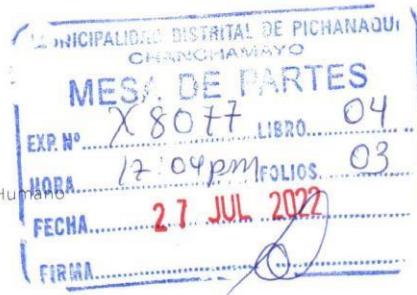 MUNICIPALIDAD DISTRITAL DE PICHANAQUI
CHANCHAMAYO
MESA DE PARTES
EXP. Nº X8077 LIBRO 04
HORA 12:04pm FOLIOS 03
Humano
FECHA 27 JUL 2022
FIRMA